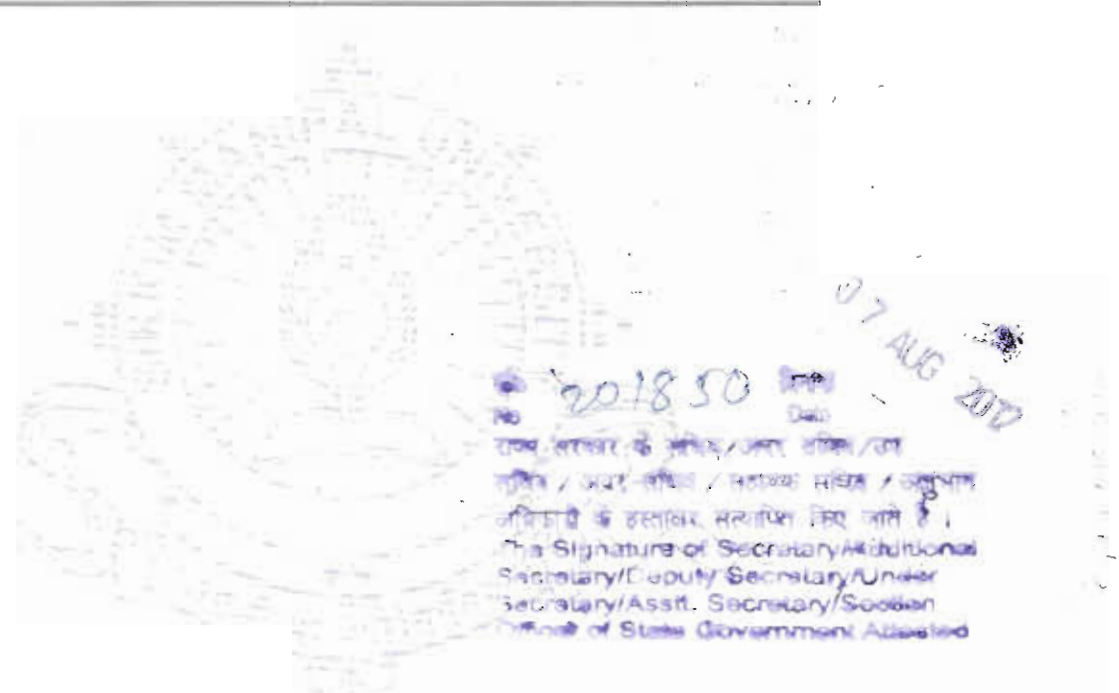 07 AUG 2012
201850
No Date
राज्य सरकार के सचिव/अपर सचिव/उप
सचिव / अवर सचिव / सहायक सचिव / अनुभाग
अधिकारी के हस्ताक्षर सत्यापित किए जाते है ।
The Signature of Secretary/Additional
Secretary/Deputy Secretary/Under
Secretary/Asstt. Secretary/Section
Officer of State Government Attested